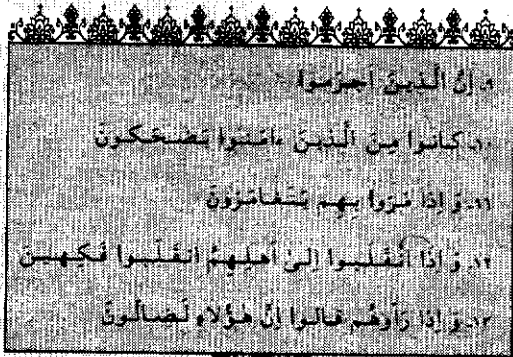 ۹. إِنَّ الَّذِينَ أَجرَمُوا
۱۰. كَانوا مِنَ الَّذينَ ءامَنوا يَضحَكونَ
۱۱. وَ إِذا مَرّوا بِهِم يَتَغامَزونَ
۱۲. وَ إِذَا انقَلَبوا إِلىٰ أَهلِهِمُ انقَلَبوا فَكِهينَ
۱۳. وَ إِذا رَأَوهُم قالوا إِنَّ هٰؤُلاءِ لَضالّونَ